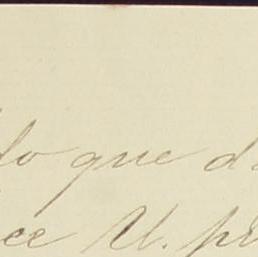 lo que d
ce U. pr